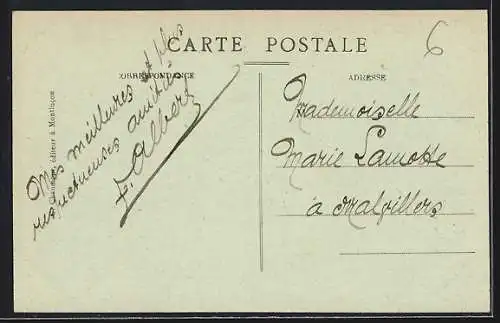 CARTE POSTALE
6
CORRESPONDANCE
ADRESSE
Mes meilleures et plus
respectueuses amitiés
Albert
Mademoiselle
Marie Lamotte
à Malvillers
éditeur à Montluçon